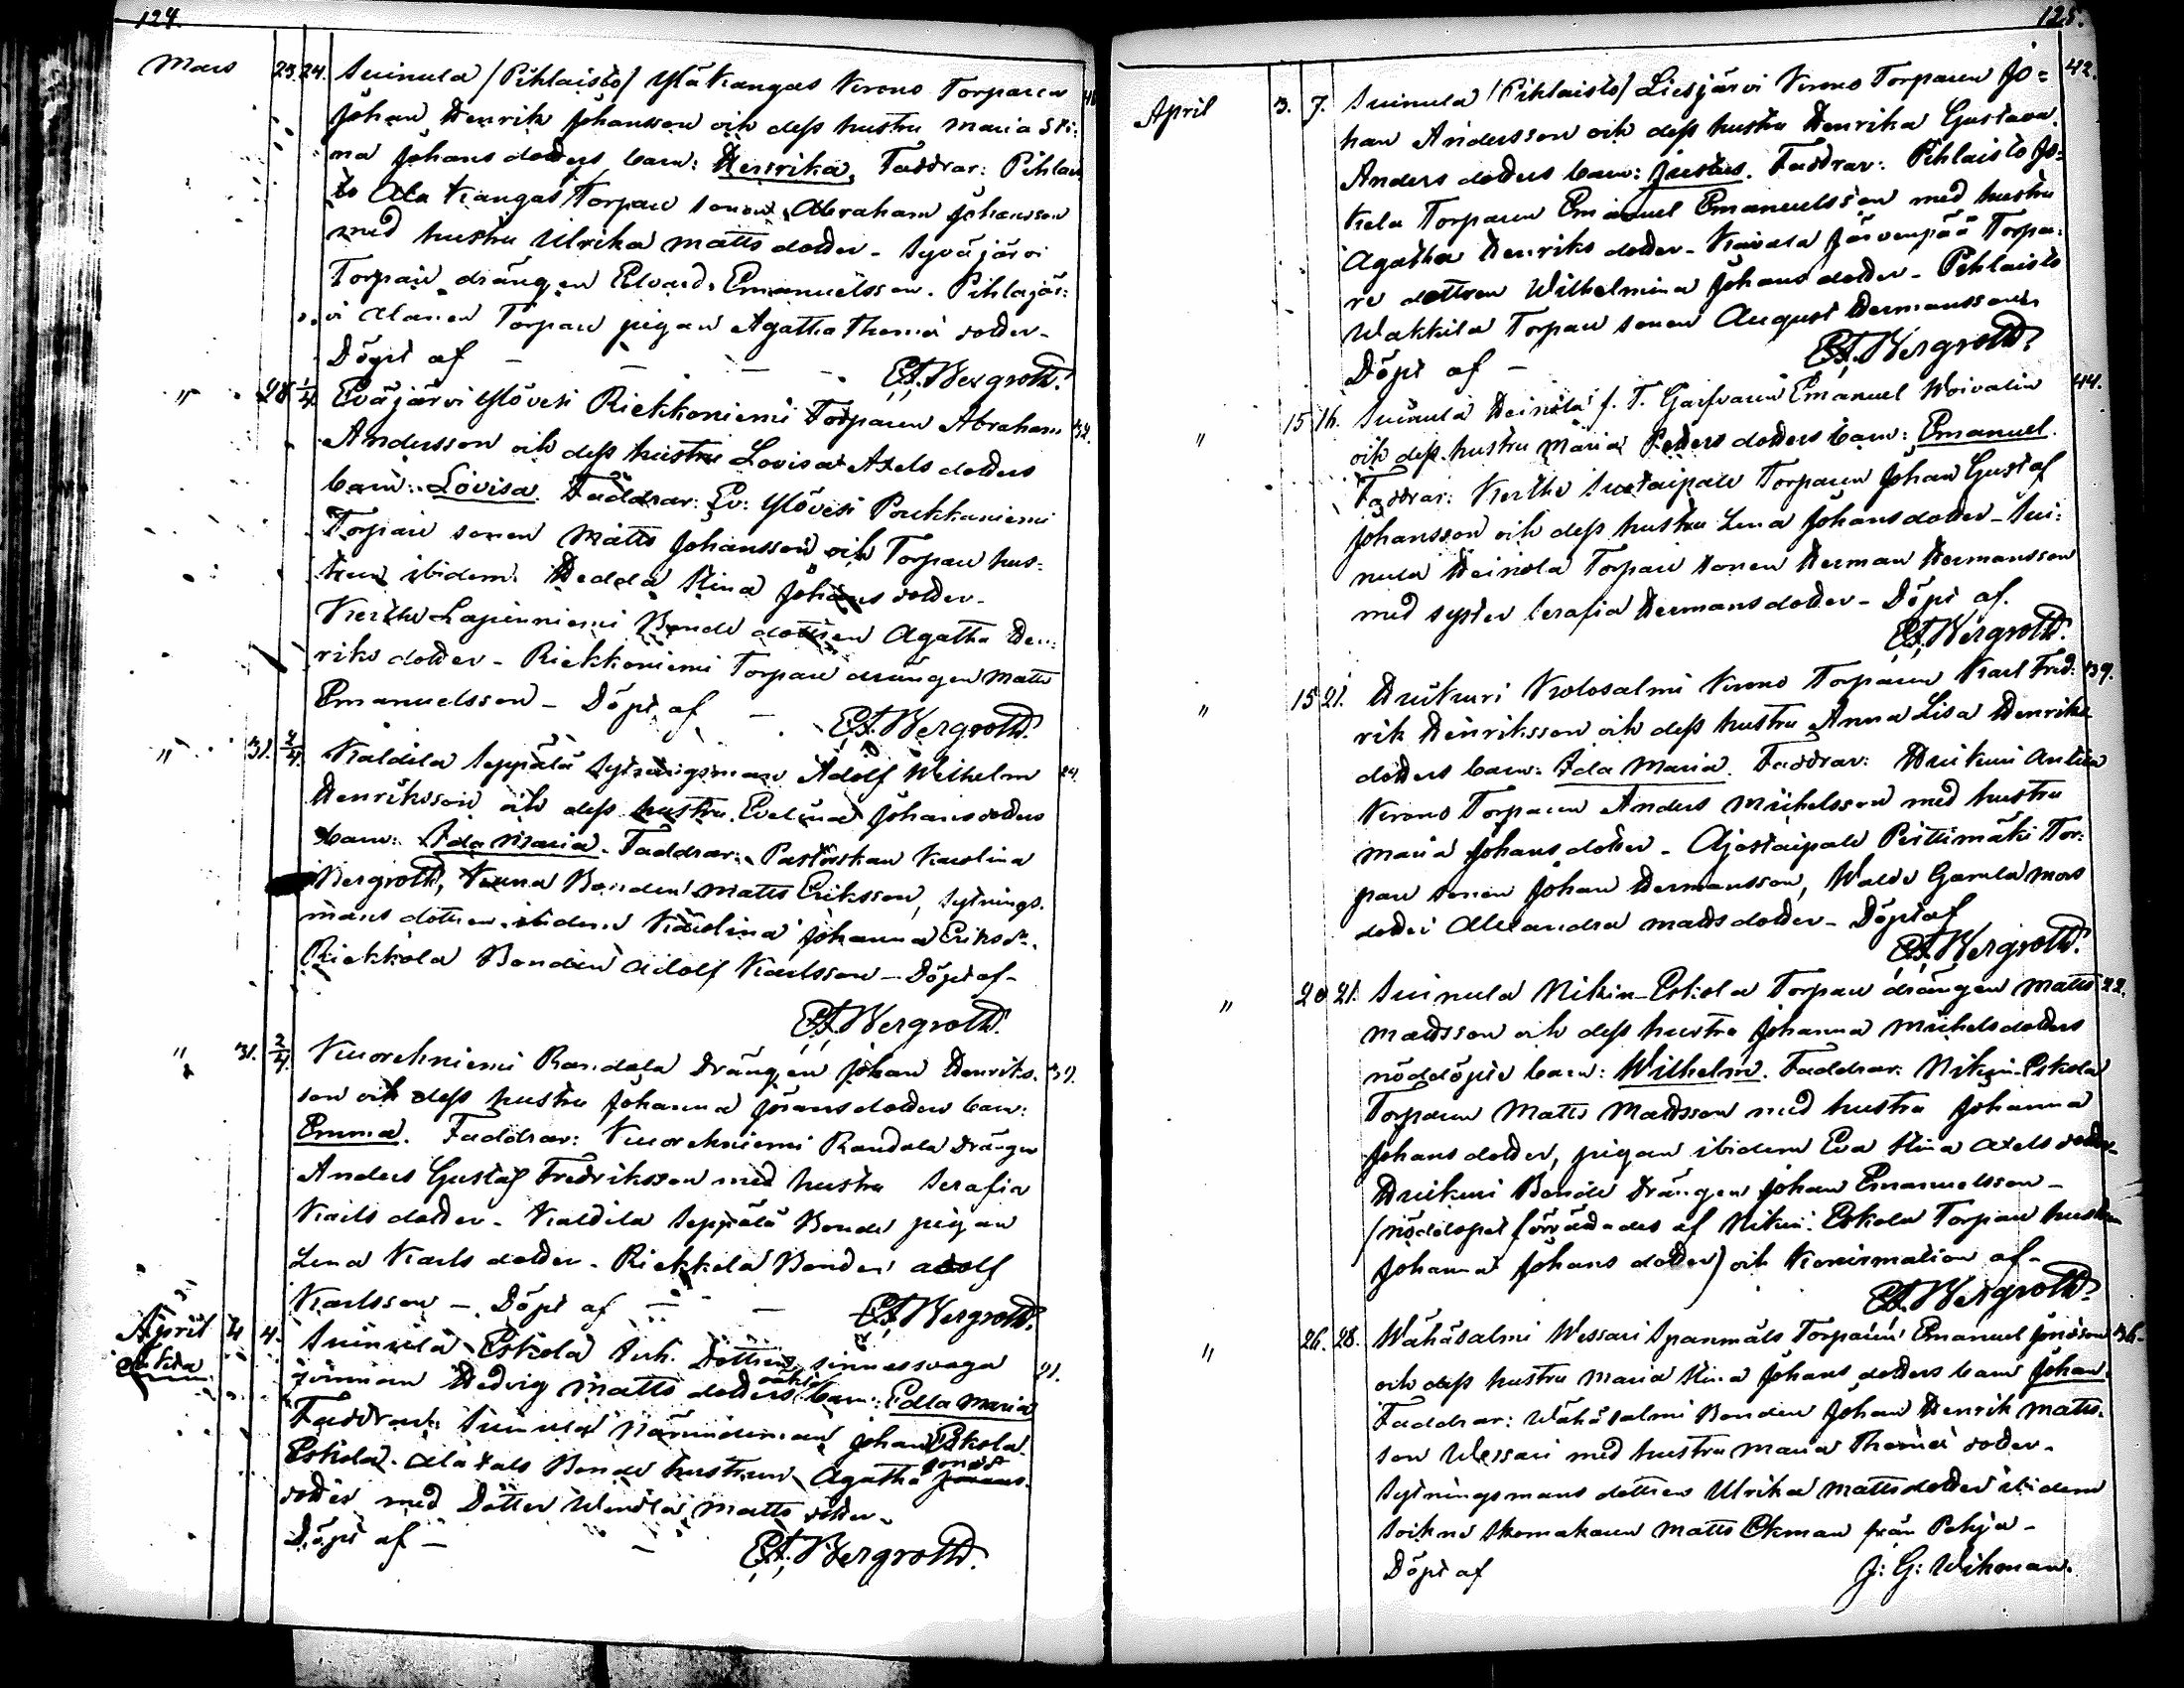 124.
Mars 23. 24. Suinula (Pihlaisto) Yläkangas Krono Torparen 41.
Johan Henrik Johansson och dess hustru Maria Sti-
na Johansdotters barn: Henrika. Faddrar: Pihlais
to Ala Kangas Torpare sonen Abraham Johansson
med hustru Ulrika Mattsdotter - Syväjärvi
Torpare drängen Edvard Emanuelsson. Pihlajär-
vi Torpare pigan Agatha Thomæ dotter -
Döpt af - - - - E.F. Bergroth.
" 28. 1/4. Eväjärvi Ylövesi Riekkoniemi Torparen Abraham 32.
Andersson och dess hustru Lovisa Axelsdotters
barn: Lovisa. Faddrar: Ev: Ylövesi Poukkaniemi
Torpare sonen Matts Johansson och Torpare hus-
trun ibidem Hedda Stina Johansdotter -
Kerthe Lapinniemi Bonde dottren Agatha Hen-
riksdotter - Riekkoniemi Torpare drängen Matts
Emanuelsson - Döpt af - E.F. Bergroth.
" 31. 2/4. Kaldila Seppälä Sytningsman Adolf Wilhelm 24.
Henriksson och dess hustru Evelina Johansdotters
barn: Ida Maria. Faddrar: Pastorskan Karolina
Bergroth, Bonden Matts Eriksson, Sytnings-
mans dottren ibidem Karolina Johanna Eriksdr.
Riekkola Bonden Adolf Karlsson - Döpt af -
E.F. Bergroth.
" 31. 2/4. Kuorehniemi Randala Drängen Johan Henriks- 37.
son och dess hustru Johanna Göransdotters barn:
Emma. Faddrar: Kuorehniemi Randala Drängen
Anders Gustaf Fredriksson med hustru Serafia
Karlsdotter - Kaldila Seppälä Bonde pigan
Lena Karlsdotter - Riekkola Bonden Adolf
Karlsson - Döpt af - - E.F. Bergroth.
April 4. 4. Suinula Eskola Dottren sinnessvaga 21.
Oäkta
qvinnan Hedvig Mattsdotters oäkta barn: Edla Maria
Faddrar: Suinula Nämndeman Johan Eskola
Eskola. Alatalo Bonde hustrun Agatha Jonæ
dotter med Dotter Wendla Mattsdotter -
Döpt af - - E.F. Bergroth.
125.
April 3. 7. Suinula (Pihlaisto) Liesjärvi Krono Torparen Jo- 42.
han Andersson och dess hustru Henrika Gustava
Andersdotters barn: Justus. Faddrar: Pihlaisto Jo-
kela Torparen Emanuel Emanuelsson med hustru
Agatha Henriksdotter - Kavala Järvenpää Torpa-
re dottren Wilhelmina Johansdotter - Pihlaisto
Wakkila Torpare sonen August Hermansson
Döpt af - E.F. Bergroth.
" 15 16. Suinula Heinola f. T. Garfvaren Emanuel Woivalin 44.
och dess hustru Maria Pettersdotters barn: Emanuel.
Faddrar: Kerthe Suataipale Torparen Johan Gustaf
Johansson och dess hustru Lena Johansdotter - Sui-
nula Heinola Torpare sonen Herman Hermansson
med syster Serafia Hermansdotter - Döpt af.
E.F. Bergroth.
" 15 21. Huikuri Krono Torparen Karl Fred- 39.
rik Henriksson och dess hustru Anna Lisa Henriks
dotters barn: Ida Maria. Faddrar: Huikuri Anttila
Krono Torparen Anders Michelsson med hustru
Maria Johansdotter - Ajostaipale Pirttimäki Tor-
pare sonen Johan Hermansson, Gamla mors
dotter Alexandra Mattsdotter - Döpt af
E.F. Bergroth.
" 20 21. Suinula Nikin-Eskola Torpare drängen Matts 22.
Mattsson och dess hustru Johanna Michelsdotters
nöddöpte barn: Wilhelm. Faddrar: Nikin-Eskola
Torparen Matts Mattsson med hustru Johanna
Johansdotter, pigan ibidem Eva Stina Axelsdotter -
Huikuri Bonde Drängen Johan Emanuelsson -
(nöddopet förrättades af Nikin-Eskola Torpare hustrun
Johanna Johansdotter) och Konfirmation af -
E.F. Bergroth.
" 26. 28. Wähäsalmi Wessari Spanmåls Torparen Emanuel Jonsson 36.
och dess hustru Maria Stina Johansdotters barn Johan.
Faddrar: Wähäsalmi Bonden Johan Henrik Matts-
son Wessari med hustru Maria Thomæ dotter -
Sytningsmans dottren Ulrika Mattsdotter ibidem
Sockne Skomakaren Matts Ekman från Pohja -
Döpt af J: G: Wikman.